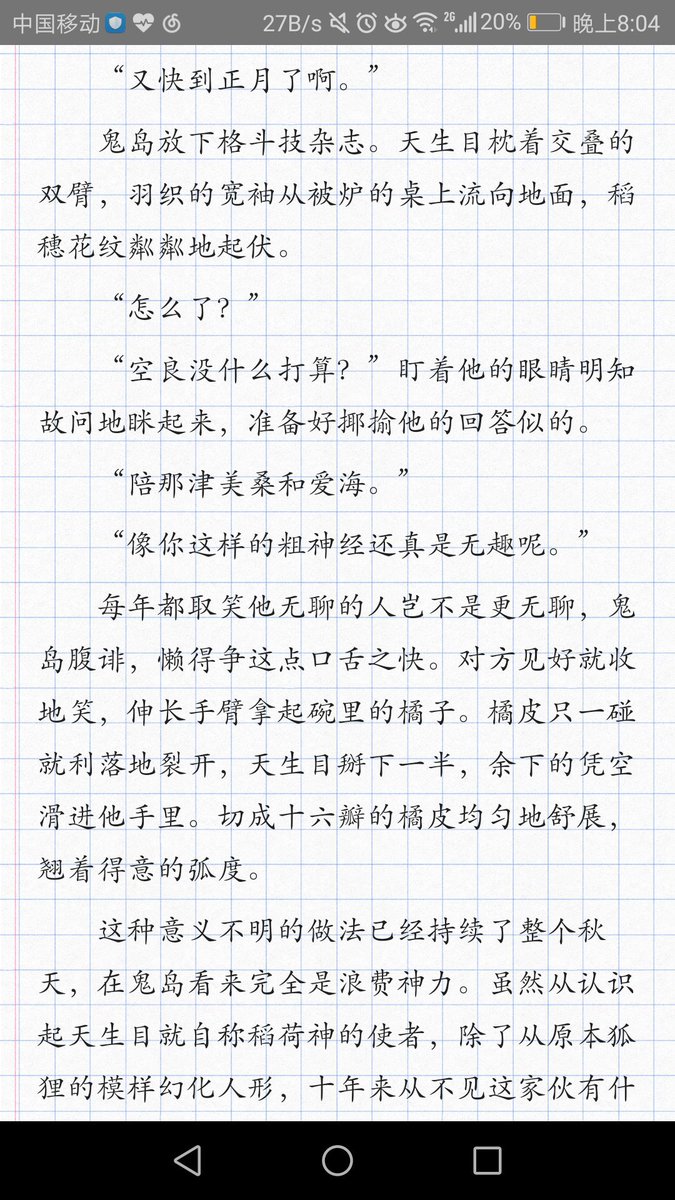 中国移动 27B/s 2G 20% 晚上8:04
“又快到正月了啊。”
鬼岛放下格斗技杂志。天生目枕着交叠的
双臂，羽织的宽袖从被炉的桌上流向地面，稻
穗花纹粼粼地起伏。
“怎么了？”
“空良没什么打算？”盯着他的眼睛明知
故问地眯起来，准备好揶揄他的回答似的。
“陪那津美桑和爱海。”
“像你这样的粗神经还真是无趣呢。”
每年都取笑他无聊的人岂不是更无聊，鬼
岛腹诽，懒得争这点口舌之快。对方见好就收
地笑，伸长手臂拿起碗里的橘子。橘皮只一碰
就利落地裂开，天生目掰下一半，余下的凭空
滑进他手里。切成十六瓣的橘皮均匀地舒展，
翘着得意的弧度。
这种意义不明的做法已经持续了整个秋
天，在鬼岛看来完全是浪费神力。虽然从认识
起天生目就自称稻荷神的使者，除了从原本狐
狸的模样幻化人形，十年来从不见这家伙有什